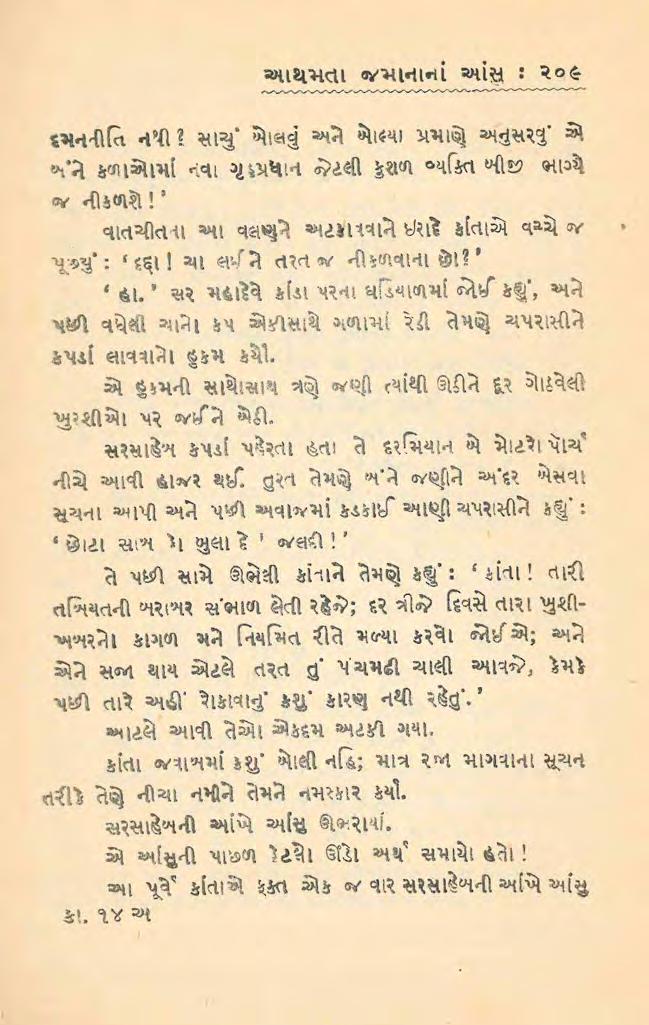 આથમતા જમાનાનાં આંસુ : ૨૦૯
દમનનીતિ નથી ? સાચું બોલવું અને બોલ્યા પ્રમાણે અનુસરવું એ
બંને કળાઓમાં નવા ગૃહપ્રધાન જેટલી કુશળ વ્યક્તિ બીજી ભાગ્યે
જ નીકળશે ! ’
વાતચીતના આ વલણને અટકાવવાને ઇરાદે કાંતાએ વચ્ચે જ
પૂછ્યું : ‘ દદ્દા ! ચા લઈને તરત જ નીકળવાના છો ? ’
‘ હા. ’ સર મહાદેવે કાંડા પરના ઘડિયાળમાં જોઈ કહ્યું, અને
પછી વધેલી ચાનો કપ એકીસાથે ગળામાં રેડી તેમણે ચપરાસીને
કપડાં લાવવાનો હુકમ કર્યો.
એ હુકમની સાથોસાથ ત્રણે જણી ત્યાંથી ઊઠીને દૂર ગોઠવેલી
ખુરશીઓ પર જઈને બેઠી.
સરસાહેબ કપડાં પહેરતા હતા તે દરમિયાન બે મોટરો પોર્ચ
નીચે આવી હાજર થઈ. તુરત તેમણે બંને જણીને અંદર બેસવા
સૂચના આપી અને પછી અવાજમાં કડકાઈ આણી ચપરાસીને કહ્યું :
‘ છોટા સાબ કો બુલા દે ! જલદી ! ’
તે પછી સામે ઊભેલી કાંતાને તેમણે કહ્યું : ‘ કાંતા ! તારી
તબિયતની બરાબર સંભાળ લેતી રહેજે; દર ત્રીજે દિવસે તારા ખુશી-
ખબરનો કાગળ મને નિયમિત રીતે મળ્યા કરવો જોઈએ; અને
એને સજા થાય એટલે તરત તું પંચમઢી ચાલી આવજે, કેમકે
પછી તારે અહીં રોકાવાનું કશું કારણ નથી રહેતું. ’
આટલે આવી તેઓ એકદમ અટકી ગયા.
કાંતા જવાબમાં કશું બોલી નહિ; માત્ર રજા માગવાના સૂચન
તરીકે તેણે નીચા નમીને તેમને નમસ્કાર કર્યાં.
સરસાહેબની આંખે આંસુ ઊભરાયાં.
એ આંસુની પાછળ કેટલો ઊંડો અર્થ સમાયો હતો !
આ પૂર્વે કાંતાએ ફક્ત એક જ વાર સરસાહેબની આંખે આંસુ
કા. ૧૪ અ